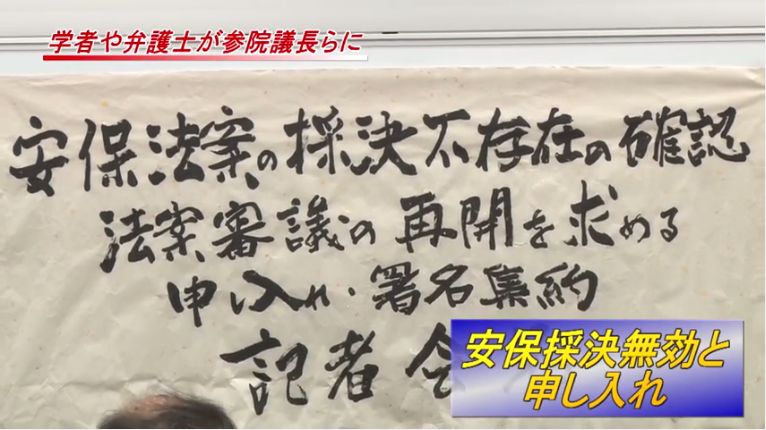 学者や弁護士が参院議長らに
安保法案の採決不存在の確認
法案審議の再開を求める
申し入れ・署名集約
記者会
安保採決無効と
申し入れ